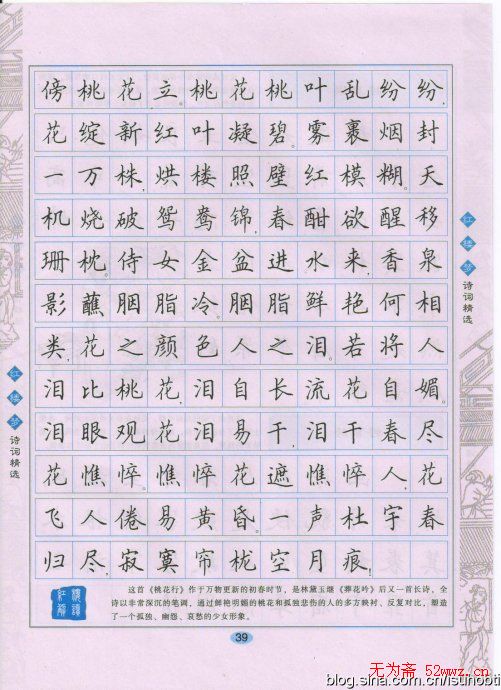 傍桃花立。桃花桃叶乱纷纷,
花绽新红叶凝碧。雾裹烟封
一万株,烘楼照壁红模糊。天
机烧破鸳鸯锦,春酣欲醒移
珊枕。侍女金盆进水来,香泉
影蘸胭脂冷。胭脂鲜艳何相
类,花之颜色人之泪。若将人
泪比桃花,泪自长流花自媚。
泪眼观花泪易干,泪干春尽
花憔悴。憔悴花遮憔悴人,花
飞人倦易黄昏。一声杜宇春
归尽,寂寞帘栊空月痕。
红楼梦
诗词精选
红楼梦
诗词精选
这首《桃花行》作于万物更新的初春时节,是林黛玉继《葬花吟》后又一首长诗,全
诗以非常深沉的笔调,通过鲜艳明媚的桃花和孤独悲伤的人的多方映衬、反复对比,塑造
了一个孤独、幽怨、哀愁的少女形象。
39
无为斋 52wwz.cn
blog.sina.com.cn/lsunobti